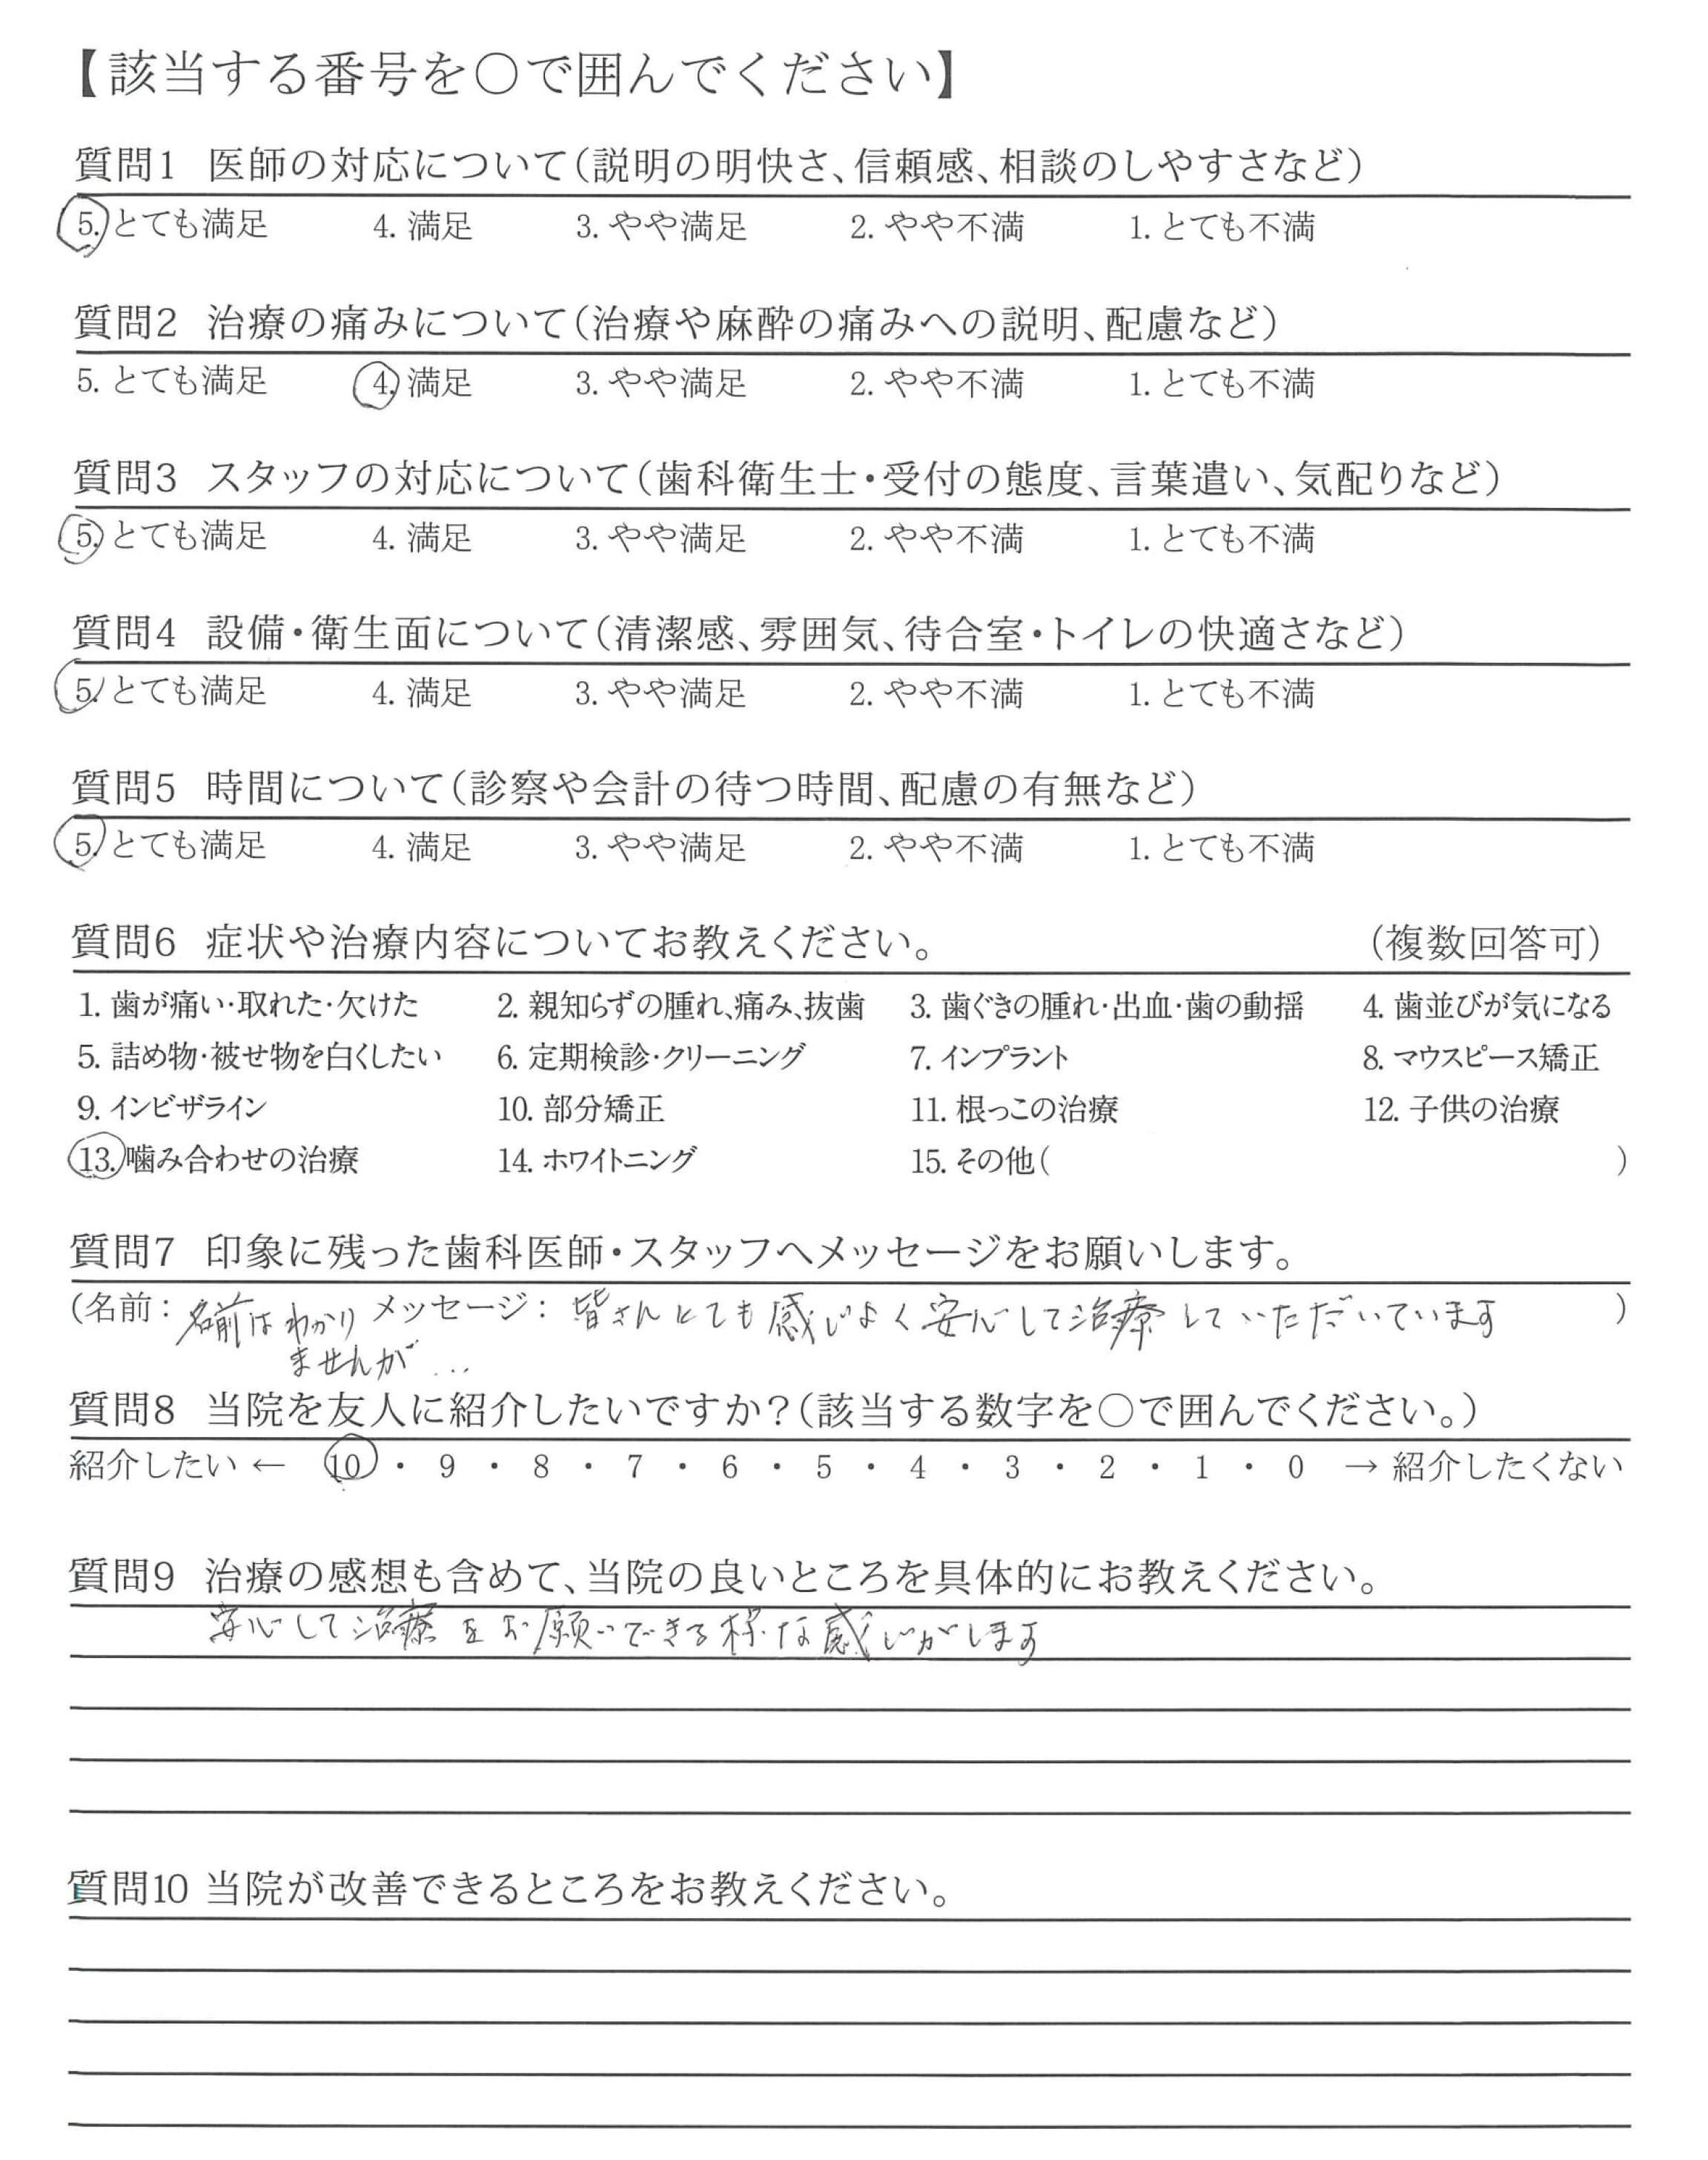 【該当する番号を〇で囲んでください】
質問1 医師の対応について(説明の明快さ、信頼感、相談のしやすさなど)
5. とても満足 4. 満足 3. やや満足 2. やや不満 1. とても不満
質問2 治療の痛みについて(治療や麻酔の痛みへの説明、配慮など)
5. とても満足 4. 満足 3. やや満足 2. やや不満 1. とても不満
質問3 スタッフの対応について(歯科衛生士・受付の態度、言葉遣い、気配りなど)
5. とても満足 4. 満足 3. やや満足 2. やや不満 1. とても不満
質問4 設備・衛生面について(清潔感、雰囲気、待合室・トイレの快適さなど)
5. とても満足 4. 満足 3. やや満足 2. やや不満 1. とても不満
質問5 時間について(診察や会計の待つ時間、配慮の有無など)
5. とても満足 4. 満足 3. やや満足 2. やや不満 1. とても不満
質問6 症状や治療内容についてお教えください。 (複数回答可)
1. 歯が痛い・取れた・欠けた 2. 親知らずの腫れ、痛み、抜歯 3. 歯ぐきの腫れ・出血・歯の動揺 4. 歯並びが気になる
5. 詰め物・被せ物を白くしたい 6. 定期検診・クリーニング 7. インプラント 8. マウスピース矯正
9. インビザライン 10. 部分矯正 11. 根っこの治療 12. 子供の治療
13. 噛み合わせの治療 14. ホワイトニング 15. その他( )
質問7 印象に残った歯科医師・スタッフへメッセージをお願いします。
(名前: 名前はわかり メッセージ: 皆さんとても感じよく安心して治療していただいています )
ませんが…
質問8 当院を友人に紹介したいですか?(該当する数字を〇で囲んでください。)
紹介したい ← 10 ・ 9 ・ 8 ・ 7 ・ 6 ・ 5 ・ 4 ・ 3 ・ 2 ・ 1 ・ 0 → 紹介したくない
質問9 治療の感想も含めて、当院の良いところを具体的にお教えください。
安心して治療をお願いできる様な感じがします
質問10 当院が改善できるところをお教えください。